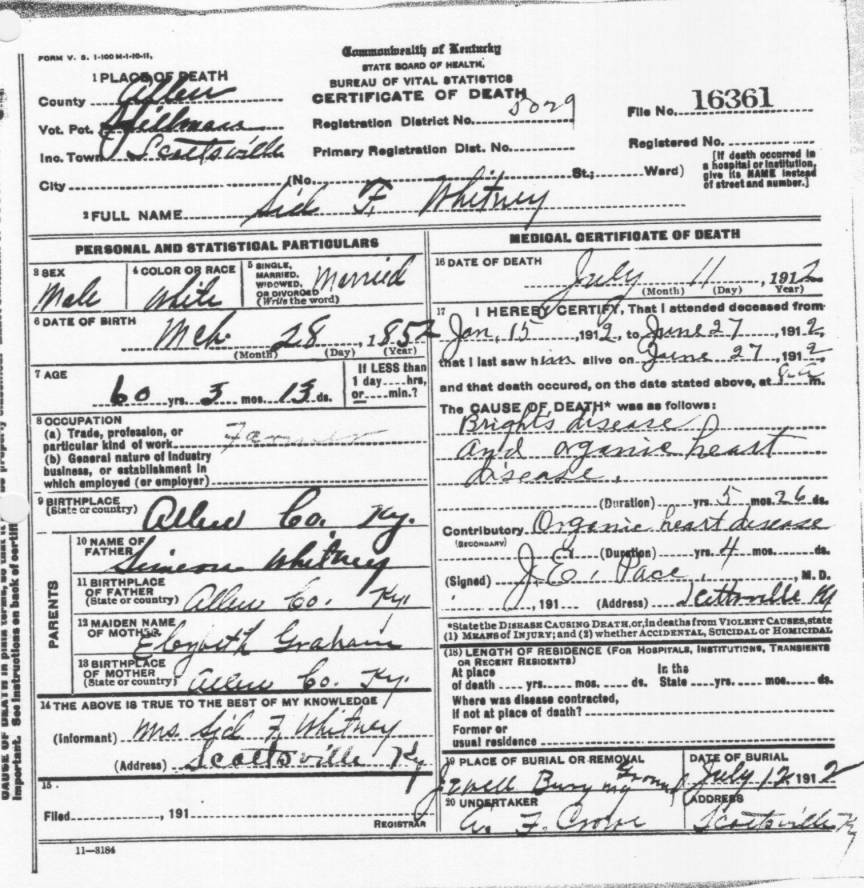 FORM V. S. 1-100 M-1-10-11.
Commonwealth of Kentucky
STATE BOARD OF HEALTH,
BUREAU OF VITAL STATISTICS
CERTIFICATE OF DEATH
1 PLACE OF DEATH
County Allen
Vot. Pct. Hillman
Inc. Town Scottsville
City
Registration District No. 5029
Primary Registration Dist. No.
(No. St.; Ward)
File No. 16361
Registered No.
[If death occurred in
a hospital or institution,
give its NAME instead
of street and number.]
2 FULL NAME Sid F. Whitney
PERSONAL AND STATISTICAL PARTICULARS
3 SEX
Male
4 COLOR OR RACE
White
5 SINGLE,
MARRIED,
WIDOWED,
OR DIVORCED
(Write the word)
Married
6 DATE OF BIRTH
Mch. 28, 1852
(Month) (Day) (Year)
7 AGE
60 yrs. 3 mos. 13 ds.
If LESS than
1 day....hrs,
or....min.?
8 OCCUPATION
(a) Trade, profession, or
particular kind of work Farmer
(b) General nature of industry
business, or establishment in
which employed (or employer)
9 BIRTHPLACE
(State or country) Allen Co. Ky.
PARENTS
10 NAME OF
FATHER Simeon Whitney
11 BIRTHPLACE
OF FATHER
(State or country) Allen Co. Ky.
12 MAIDEN NAME
OF MOTHER Elizabeth Graham
13 BIRTHPLACE
OF MOTHER
(State or country) Allen Co. Ky.
14 THE ABOVE IS TRUE TO THE BEST OF MY KNOWLEDGE
(Informant) Mrs Sid F. Whitney
(Address) Scottsville Ky
15
Filed, 191
REGISTRAR
11-3184
MEDICAL CERTIFICATE OF DEATH
16 DATE OF DEATH
July 11, 1912
(Month) (Day) Year)
17 I HEREBY CERTIFY, That I attended deceased from
Jan, 15, 1912, to June 27, 1912,
that I last saw him alive on June 27, 1912
and that death occured, on the date stated above, at m.
The CAUSE OF DEATH* was as follows:
Brights disease
and organic heart
disease.
(Duration) yrs. 5 mos. 26 ds.
Contributory Organic heart disease
(SECONDARY)
(Duration) yrs. 4 mos. ds.
(Signed) J. E. Pace, M. D.
, 191 (Address) Scottsville Ky
*State the DISEASE CAUSING DEATH, or, in deaths from VIOLENT CAUSES, state
(1) MEANS OF INJURY; and (2) whether ACCIDENTAL, SUICIDAL or HOMICIDAL
(18) LENGTH OF RESIDENCE (FOR HOSPITALS, INSTITUTIONS, TRANSIENTS
OR RECENT RESIDENTS)
At place In the
of death yrs. mos. ds. State yrs. mos. ds.
Where was disease contracted,
if not at place of death?
Former or
usual residence
19 PLACE OF BURIAL OR REMOVAL
Jewell Burying Ground
DATE OF BURIAL
July 12, 1912
20 UNDERTAKER
F. Crowe
ADDRESS
Scottsville Ky
CAUSE OF DEATH in plain terms, so that it
important. See instructions on back of certif